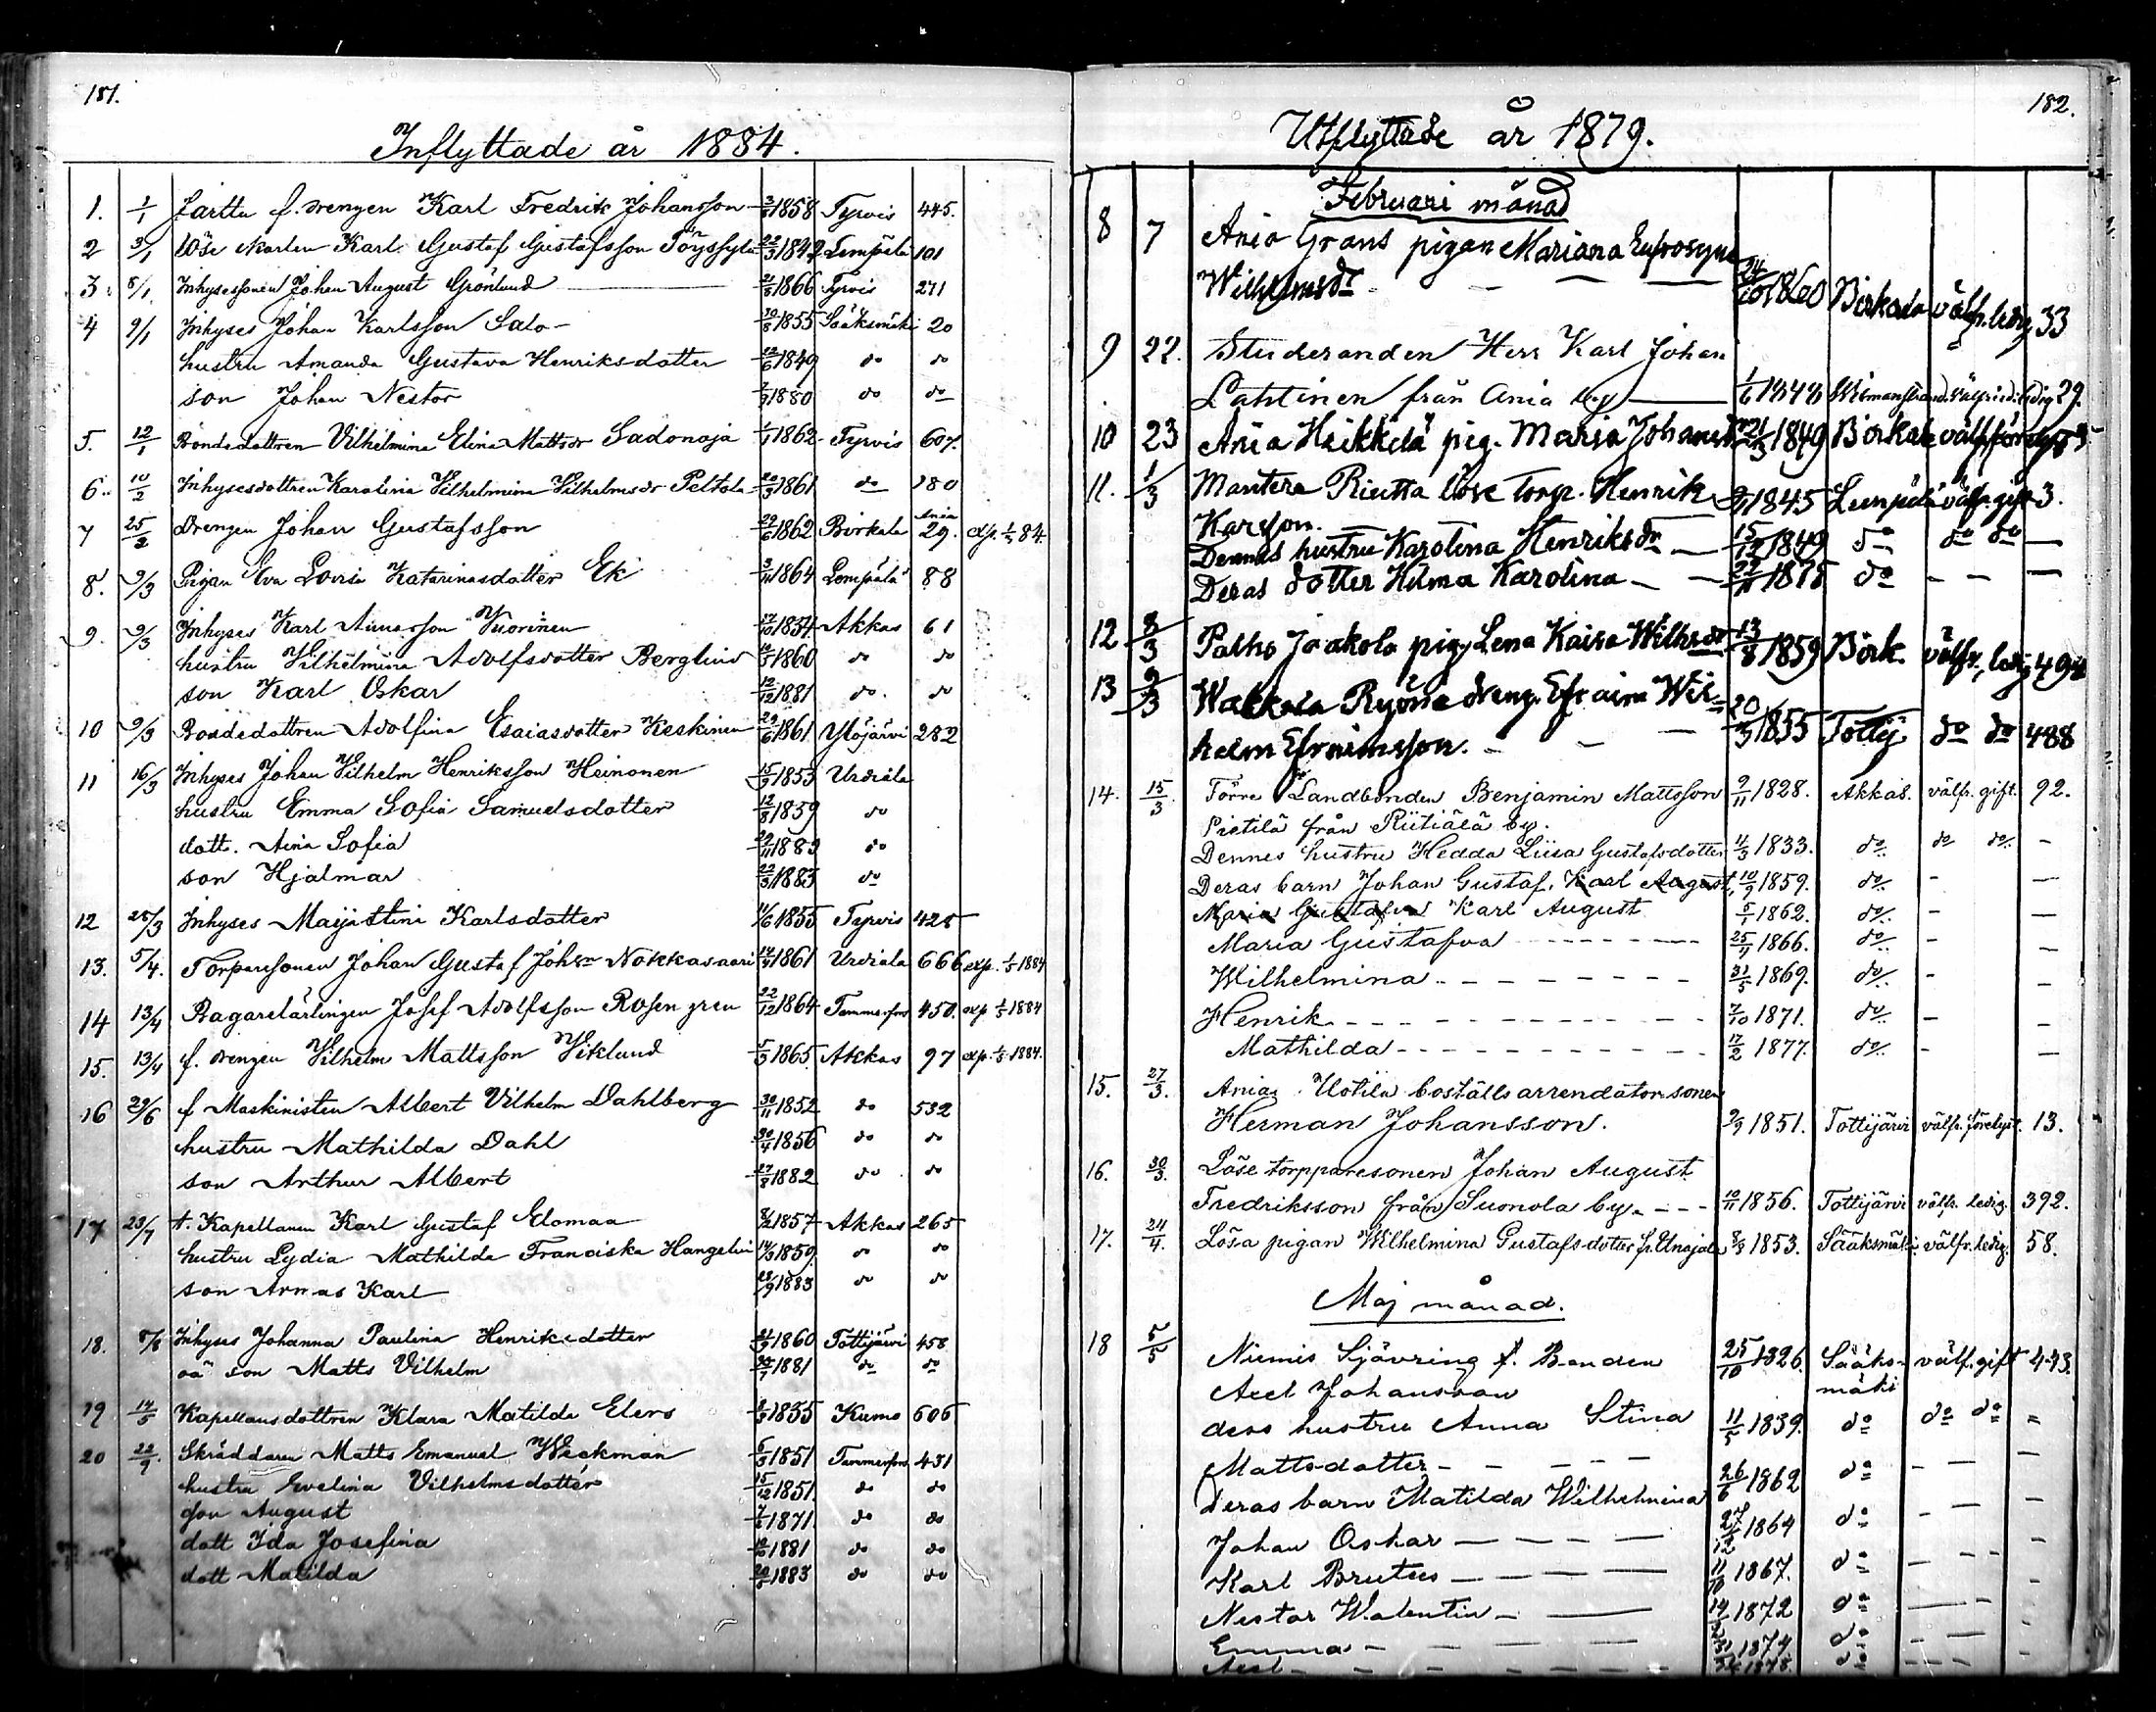 181.
Inflyttade år 1884.
1. 1/1 f. drengen Karl Fredrik Johansson 1858 Tyrvis 445.
2 3/1 Löse Karlen Karl Gustaf Gustafsson 22/3 1842 Lempälä 101
3. 8/1 Inhysessonen Johan August Grönlund 1866 Tyrvis 271
4 9/1 Inhyses Johan Karlsson Salo - 1855 Sääksmäki 20
hustru Amanda Gustava Henriksdotter 1849 do do
son Johan Nestor 1880 do do
5. 12/1 Bondedottren Vilhelmina Elina Mattsdr Sadonoja 1/1 1862 Tyrvis 607.
6. 10/2 Inhysesdottren Karolina Vilhelmina Vilhelmsdr Peltola 1861 do 180
7 25/2 Drengen Johan Gustafsson 29/6 1862 Birkala Ania 29. exp. 84.
8. 9/3 Pigan Eva Lovisa Katarinasdotter Ek 3/11 1864 Lempälä 88
9. 9/3 Inhyses Karl Vuorinen 17/10 1834 Akkas 61
hustru Vilhelmina Adolfsdotter Berglund 1860 do do
son Karl Oskar 12/12 1881 do. do
10 9/3 Bondedottren Adolfina Esaiasdotter Keskinen 29/6 1861 Ylöjärvi 282
11 16/3 Inhyses Johan Vilhelm Henriksson Heinonen 15/9 1853 Urdiala
hustru Emma Sofia Samuelsdotter 12/8 1859 do
dott. Aina Sofia do
son Hjalmar 22/3 1883 do
12 25/3 Inhyses Maijastina Karlsdotter 11/6 1855 Tyrvis 425
13. 5/4. Torparesonen Johan Gustaf Johsn Nokkasaari 1861 Urdiala 666 exp. 1884
14 13/4 Bagarelärlingen Josef Adolfsson Rosengren 22/12 1864 Tammerfors 450. exp 1884
15. 13/4 f. drengen Vilhelm Mattsson Viklund 5/3 1865 Akkas 97 exp. 1884.
16 29/6 f Maskinisten Albert Vilhelm Dahlberg 30/11 1852 do 532
hustru Mathilda Dahl 30/4 1856 do do
son Arthur Albert 27/8 1882 do do
17 23/7 t. Kapellanen Karl Gustaf Elomaa 1857 Akkas 265
hustru Lydia Mathilda Franciska 1859 do do
son Armas Karl 28/9 1883 do do
18. 8/8 Inhyses Johanna Paulina Henriksdotter 1860 Tottijärvi 458
oä son Matts Vilhelm 1881 do do
19 14/5 Kapellansdottren Klara Matilda Elers 1855 Kumo 606
20 22/9. Skräddaren Matts Emanuel Weckman 6/3 1851 Tammerfors 431
hustru Evelina Vilhelmsdotter 15/12 1851 do do
son August 1871 do do
dott Ida Josefina 1881 do do
dott Matilda 1883 do do
182.
Utflyttade år 1879.
Februari månad
8 7 Ania Grans pigan Mariana Eufrosyne
Wilhelmsdr 24/10 1860 Birkala välfr. ledig 33
9 22. Studeranden Herr Karl Johan
Lahtinen från Ania by 1/6 1848 29.
10 23 Ania Heikkilä pig. Maria 1849 Birkala
11. 1/3 Mantere Riutta löse torp. Henrik 1845 Lempälä välfr. gift 3.
Karsson.
Dennes hustru Karolina Henriksdr 15/12 1849 do do do
Deras dotter Hilma Karolina 1878 do
12 8/3 Palho Jaakola pig. Lena Kaisa Wilhdr 13/8 1859 Birk. välfr, ledig
13 9/3 dreng. Efraim Wil=
helm Efraimsson. 20/3 1855 Tottij do do 488
14. 15/3. Förre Landbonden Benjamin Mattsson 9/11 1828. Akkas. välfr. gift. 92.
Pietilä från Riitiälä by.
Dennes hustru Hedda Liisa Gustafsdotter 4/3 1833. do. do do.
Deras barn Johan Gustaf. Karl August, 10/9 1859. do.
Maria Gustafva Karl August 5/1 1862. do.
Maria Gustafva 25/11 1866. do.
Wilhelmina 31/5 1869. do.
Henrik 7/10 1871. do.
Mathilda 17/2 1877. do.
15. 27/3. Ania Uotila boställsarrendatorsonen
Herman Johansson. 9/9 1851. Tottijärvi välfr. förelyst. 13.
16. 30/3. Löse torpparesonen Johan August
Fredriksson från Suonola by. 10/11 1856. Tottijärvi välfr. ledig. 392.
17. 24/4. Lösa pigan Wilhelmina Gustafsdotter fr. 1853. Sääksmäki. välfr. ledig. 58.
Maj månad.
18 5/5 Niemis Sjävring f. Bonden 25/10 1826. Sääks- välf. gift 443.
Axel Johansson mäki
dess hustru Anna Stina 11/5 1839. do do do
Mattsdotter
Deras barn Matilda Wilhelmina 26/6 1862 do
Johan Oskar 27/12 1864 do
Karl Brutus 11/10 1867. do
Nestor Walentin 1872 do
Emma 1874 do
Axel 1878. do